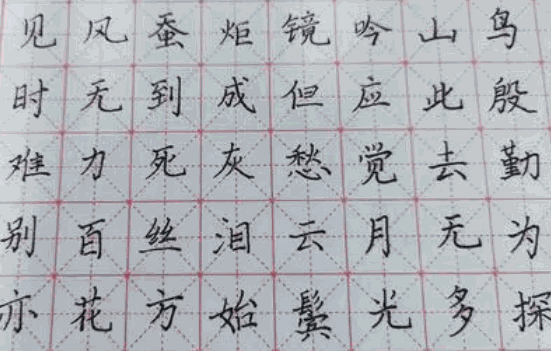 见时难别亦
风无力百花
蚕到死丝方
炬成灰泪始
镜但愁云鬓
吟应觉月光
山此去无多
鸟殷勤为探